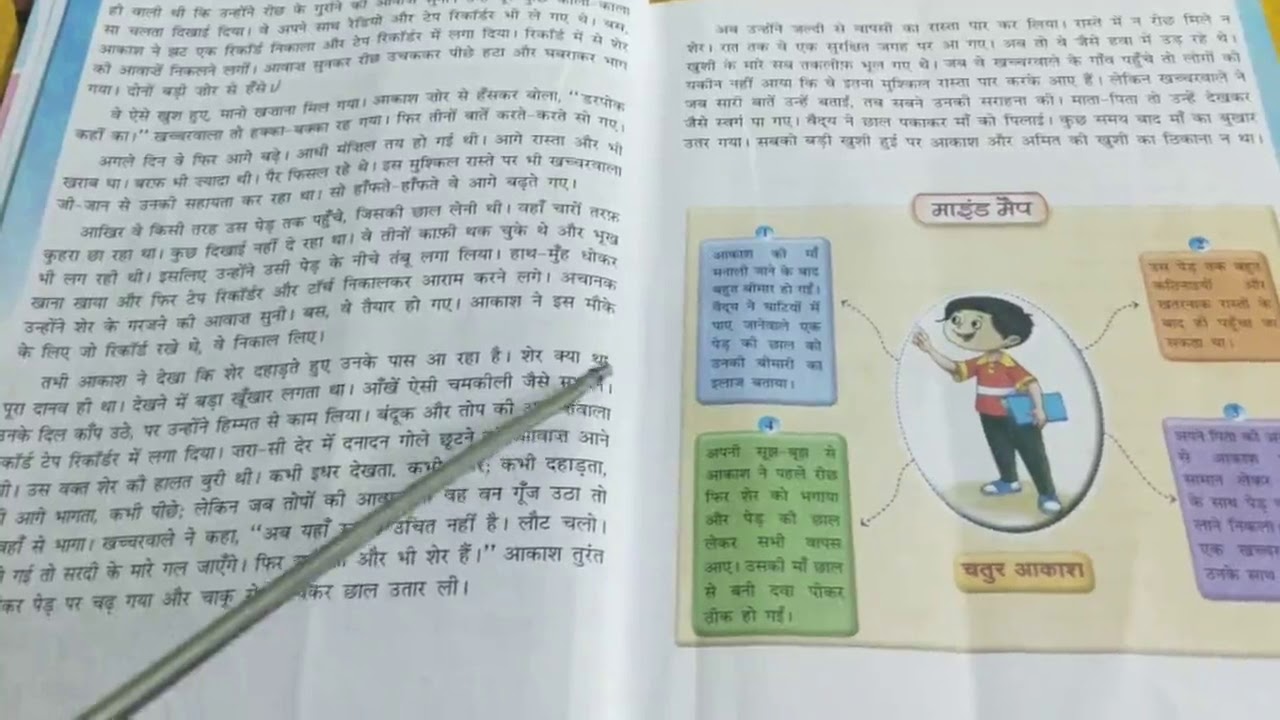 हो वाली थी कि उन्होंने रीछ के गुर्राने की आवाज़
सा चलता दिखाई दिया। वे अपने साथ रेडियो और टेप रिकॉर्डर भी ले गए थे। बस,
आकाश ने झट एक रिकॉर्ड निकाला और टेप रिकॉर्डर में लगा दिया। रिकॉर्ड में से शेर
की आवाज़ें निकलने लगीं। आवाज़ सुनकर रीछ उचककर पीछे हटा और घबराकर भाग
गया। दोनों बड़ी ज़ोर से हँसे।
वे ऐसे खुश हुए, मानो खज़ाना मिल गया। आकाश ज़ोर से हँसकर बोला, “डरपोक
कहीं का।” खच्चरवाला तो हक्का-बक्का रह गया। फिर तीनों बातें करते-करते सो गए।
अगले दिन वे फिर आगे बढ़े। आधी मंज़िल तय हो गई थी। आगे रास्ता और भी
खराब था। बरफ़ भी ज़्यादा थी। पैर फिसल रहे थे। इस मुश्किल रास्ते पर भी खच्चरवाला
जी-जान से उनकी सहायता कर रहा था। सो हाँफते-हाँफते वे आगे बढ़ते गए।
आखिर वे किसी तरह उस पेड़ तक पहुँचे, जिसकी छाल लेनी थी। वहाँ चारों तरफ़
कुहरा छा रहा था। कुछ दिखाई नहीं दे रहा था। वे तीनों काफ़ी थक चुके थे और भूख
भी लग रही थी। इसलिए उन्होंने उसी पेड़ के नीचे तंबू लगा लिया। हाथ-मुँह धोकर
खाना खाया और फिर टेप रिकॉर्डर और टॉर्च निकालकर आराम करने लगे। अचानक
उन्होंने शेर के गरजने की आवाज़ सुनी। बस, वे तैयार हो गए। आकाश ने इस मौके
के लिए जो रिकॉर्ड रखे थे, वे निकाल लिए।
तभी आकाश ने देखा कि शेर दहाड़ते हुए उनके पास आ रहा है। शेर क्या था
पूरा दानव ही था। देखने में बड़ा खूँखार लगता था। आँखें ऐसी चमकीली जैसे
उनके दिल काँप उठे, पर उन्होंने हिम्मत से काम लिया। बंदूक और तोप की
कॉर्ड टेप रिकॉर्डर में लगा दिया। ज़रा-सी देर में दनादन गोले छूटने की आवाज़ आने
उस वक्त शेर की हालत बुरी थी। कभी इधर देखता, कभी कभी दहाड़ता,
आगे भागता, कभी पीछे; लेकिन जब तोपों की वह बन गूँज उठा तो
वहाँ से भागा। खच्चरवाले ने कहा, “अब यहाँ उचित नहीं है। लौट चलो।
गई तो सरदी के मारे गल जाएँगे। फिर और भी शेर हैं।” आकाश तुरंत
पेड़ पर चढ़ गया और चाकू छाल उतार ली।
अब उन्होंने जल्दी से वापसी का रास्ता पार कर लिया। रास्ते में न रीछ मिले न
शेर। रात तक वे एक सुरक्षित जगह पर आ गए। अब तो वे जैसे हवा में उड़ रहे थे।
खुशी के मारे सब तकलीफ़ भूल गए थे। जब वे खच्चरवाले के गाँव पहुँचे तो लोगों को
यकीन नहीं आया कि वे इतना मुश्किल रास्ता पार करके आए हैं। लेकिन खच्चरवाले ने
जब सारी बातें उन्हें बताईं, तब सबने उनकी सराहना की। माता-पिता तो उन्हें देखकर
जैसे स्वर्ग पा गए। वैद्य ने छाल पकाकर माँ को पिलाई। कुछ समय बाद माँ का बुखार
उतर गया। सबको बड़ी खुशी हुई पर आकाश और अमित की खुशी का ठिकाना न था।
माइंड मैप
1
आकाश की माँ
मनाली जाने के बाद
बहुत बीमार हो गईं।
वैद्य ने घाटियों में
पाए जानेवाले एक
पेड़ की छाल को
उनकी बीमारी का
इलाज बताया।
2
उस पेड़ तक बहुत
कठिनाइयों और
खतरनाक रास्तों के
बाद ही पहुँचा जा
सकता था।
3
अपने पिता की
से आकाश
सामान लेकर
के साथ पेड़
लाने निकला।
एक खच्चर
उनके साथ
4
अपनी सूझ-बूझ से
आकाश ने पहले रीछ
फिर शेर को भगाया
और पेड़ की छाल
लेकर सभी वापस
आए। उसकी माँ छाल
से बनी दवा पीकर
ठीक हो गईं।
चतुर आकाश